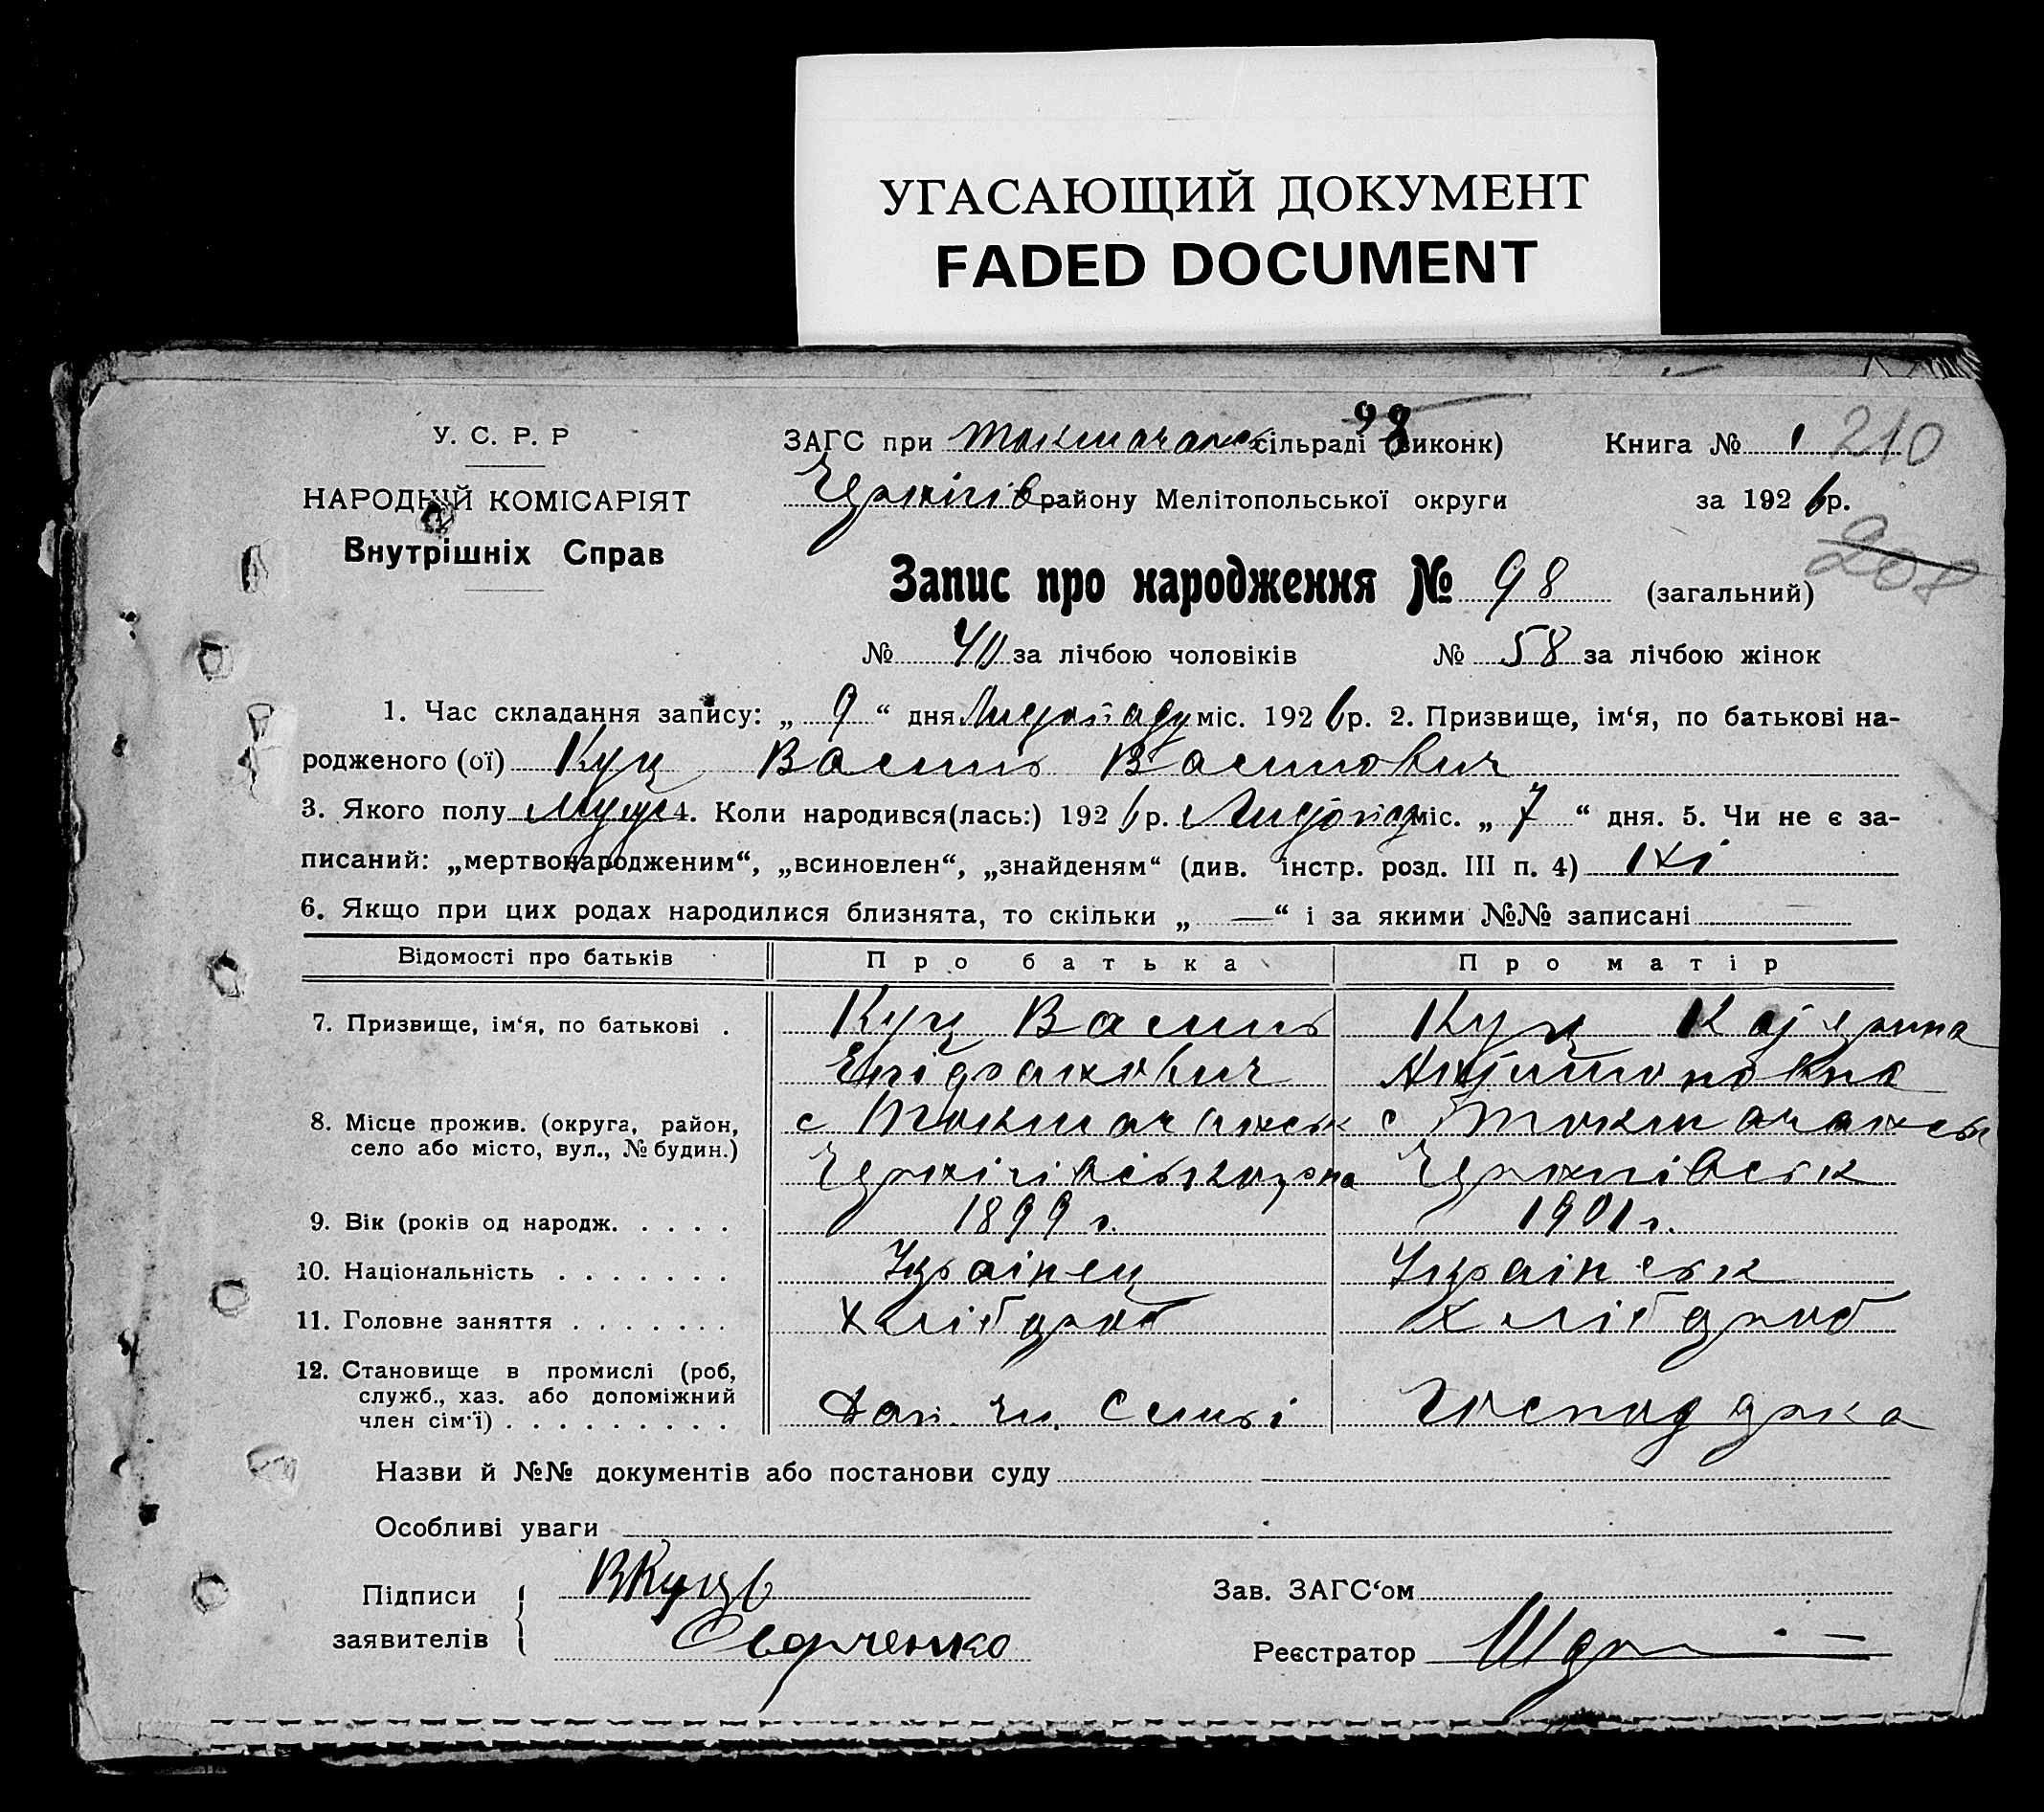 УГАСАЮЩИЙ ДОКУМЕНТ
FADED DOCUMENT
98
У. С. Р. Р
ЗАГС при Токмачанск сільраді (виконк)
Книга № 1 210
НАРОДНІЙ КОМІСАРІЯТ
Чернігів району Мелітопольської округи
за 192 6 р.
Внутрішніх Справ
208
Запис про народження № 98 (загальний)
№ 40 за лічбою чоловіків № 58 за лічбою жінок
1. Час складання запису: „ 9 “ дня Листопаду міс. 192 6 р. 2. Призвище, ім‘я, по батькові на-
родженого (ої) Куц Василь Васильович
3. Якого полу муж 4. Коли народився(лась:) 192 6 р. Листопад міс. „ 7 “ дня. 5. Чи не є за-
писаний: „мертвонародженим“, „всиновлен“, „знайденям“ (див. інстр. розд. III п. 4) ні
6. Якщо при цих родах народилися близнята, то скільки „ — “ і за якими №№ записані
Відомості про батьків Про батька Про матір
7. Призвище, ім‘я, по батькові . Куц Василь Куц Катерина
8. Місце прожив. (округа, район,
село або місто, вул., № будин.)
с Токмачанськ с Токмачанськ
Чернігівськ
9. Вік (років од народж. . . . . 1899 г. 1901 г.
10. Національність . . . . . . . Українец Українськ
11. Головне заняття . . . . . . . Хлібороб Хлібороб
12. Становище в промислі (роб,
служб., хаз. або допоміжний
член сім‘ї) . . . . . . . . .
Доп. чл. Семьі
Назви й №№ документів або постанови суду
Особливі уваги
Підписи
заявителів
ВКуць
Зав. ЗАГС‘ом
Реєстратор